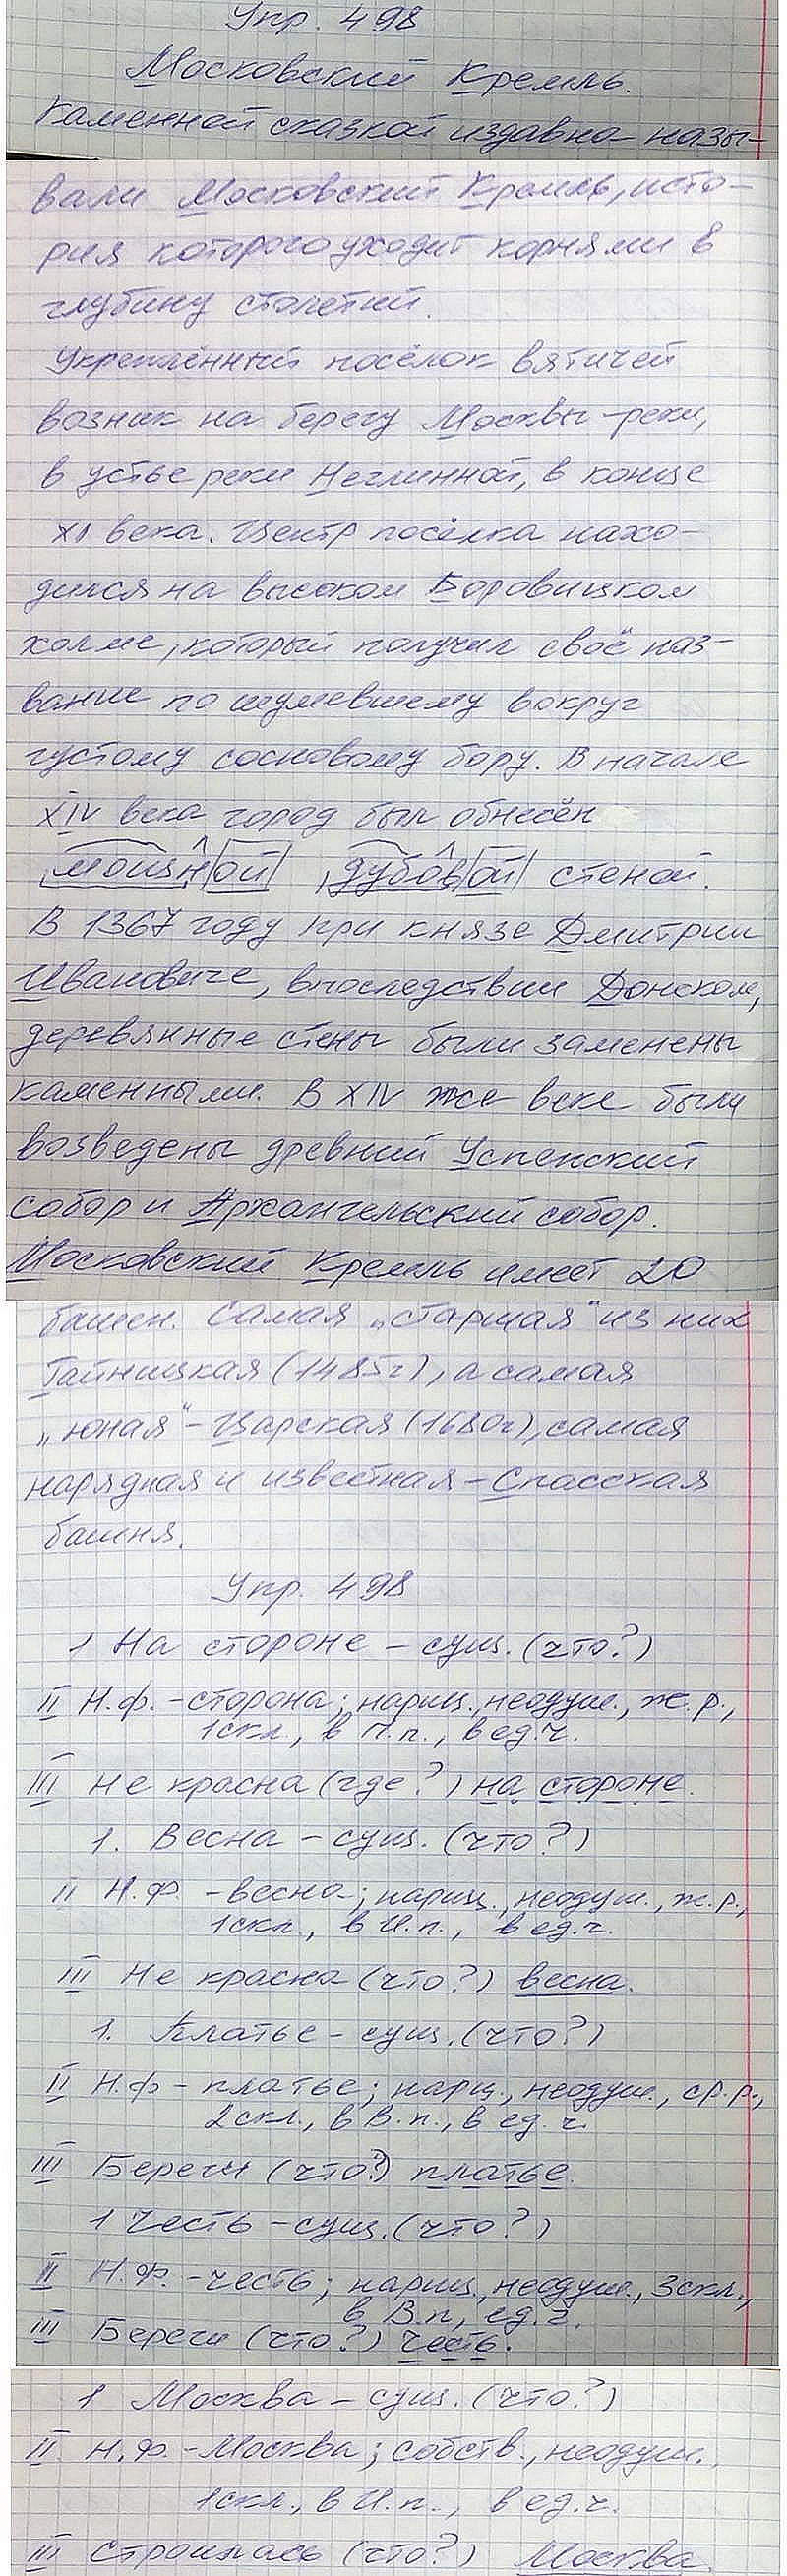 Упр. 498
Московский Кремль.
Каменной сказкой издавна назы-
вали Московский Кремль, исто-
рия которого уходит корнями в
глубину столетий.
Укреплённый посёлок вятичей
возник на берегу Москвы-реки,
в устье реки Неглинной, в конце
XI века. Центр посёлка нахо-
дился на высоком Боровицком
холме, который получил своё наз-
вание по шумевшему вокруг
густому сосновому бору. В начале
XIV века город был обнесён
мощной, дубовой стеной.
В 1367 году при князе Дмитрии
Ивановиче, впоследствии Донском,
деревянные стены были заменены
каменными. В XIV же веке были
возведены древний Успенский
собор и Архангельский собор.
Московский Кремль имеет 20
башен. Самая „старшая" из них
Тайницкая (1485г), а самая
„юная" - Царская (1680г), самая
нарядная и известная - Спасская
башня.
Упр. 498
1 На стороне - сущ. (что?)
II Н.ф. - сторона; нариц., неодуш., ж.р.,
1скл., в П.п., в ед.ч.
III Не красна (где?) на стороне.
1. Весна - сущ. (что?)
II Н.Ф. - весна; нариц., неодуш., ж.р.,
1скл., в И.п., в ед.ч.
III Не красна (что?) весна.
1. Платье - сущ. (что?)
II Н.ф - платье; нарц., неодуш., ср.р.,
2скл., в В.п., в ед.ч.
III Береги (что?) платье.
1 Честь - сущ. (что?)
II Н.Ф. - честь; нариц., неодуш., 3скл.,
в В.п, ед.ч.
III Береги (что?) честь.
1 Москва - сущ. (что?)
II. Н.Ф. - Москва; собств., неодуш.,
1скл., в И.п., в ед.ч.
III Строилась (что?) Москва.